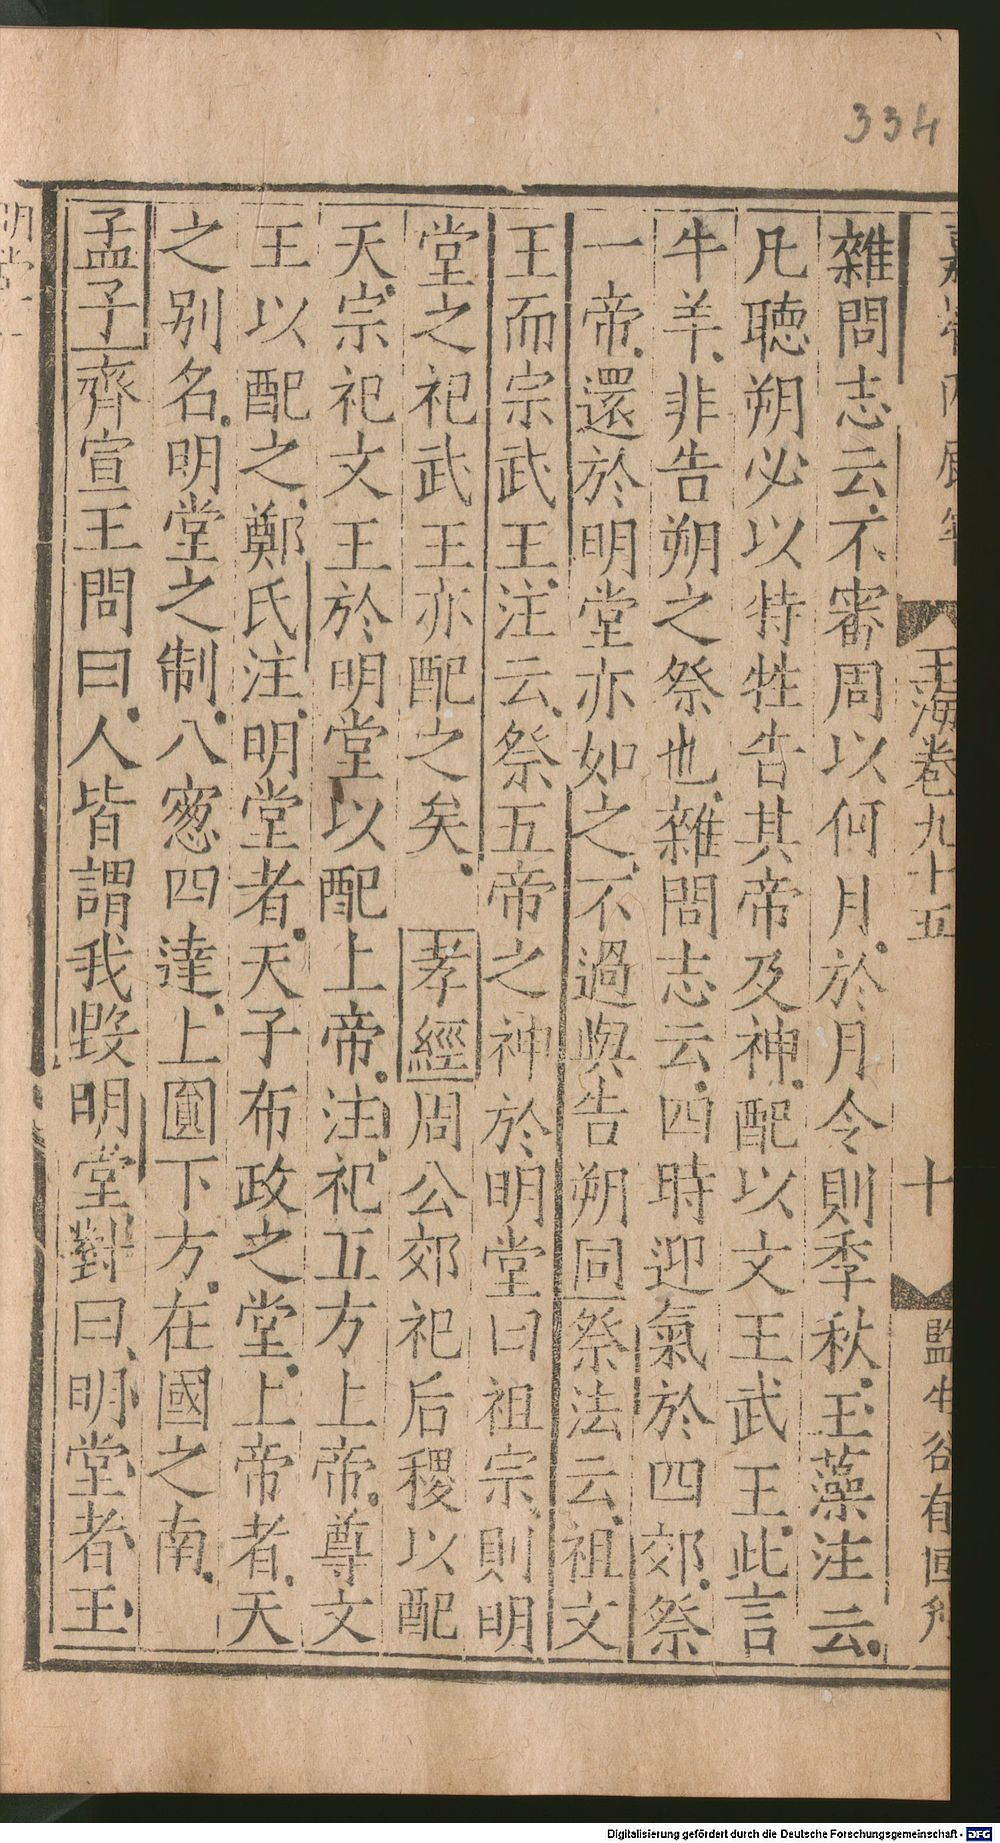 334
玉海卷九十五
十
雜問志云不審周以何月於月令則季秋玉藻注云
凡聽朔必以特牲告其帝及神配以文王武王此言
牛羊非告朔之祭也雜問志云四時迎氣於四郊祭
一帝還於明堂亦如之不過與告朔同祭法云祖文
王而宗武王注云祭五帝之神於明堂曰祖宗則明
堂之祀武王亦配之矣 孝經周公郊祀后稷以配
天宗祀文王於明堂以配上帝注祀五方上帝尊文
王以配之鄭氏注明堂者天子布政之堂上帝者天
之別名明堂之制八窻四達上圓下方在國之南
孟子齊宣王問曰人皆謂我毀明堂對曰明堂者王
Digitalisierung gefördert durch die Deutsche Forschungsgemeinschaft - DFG